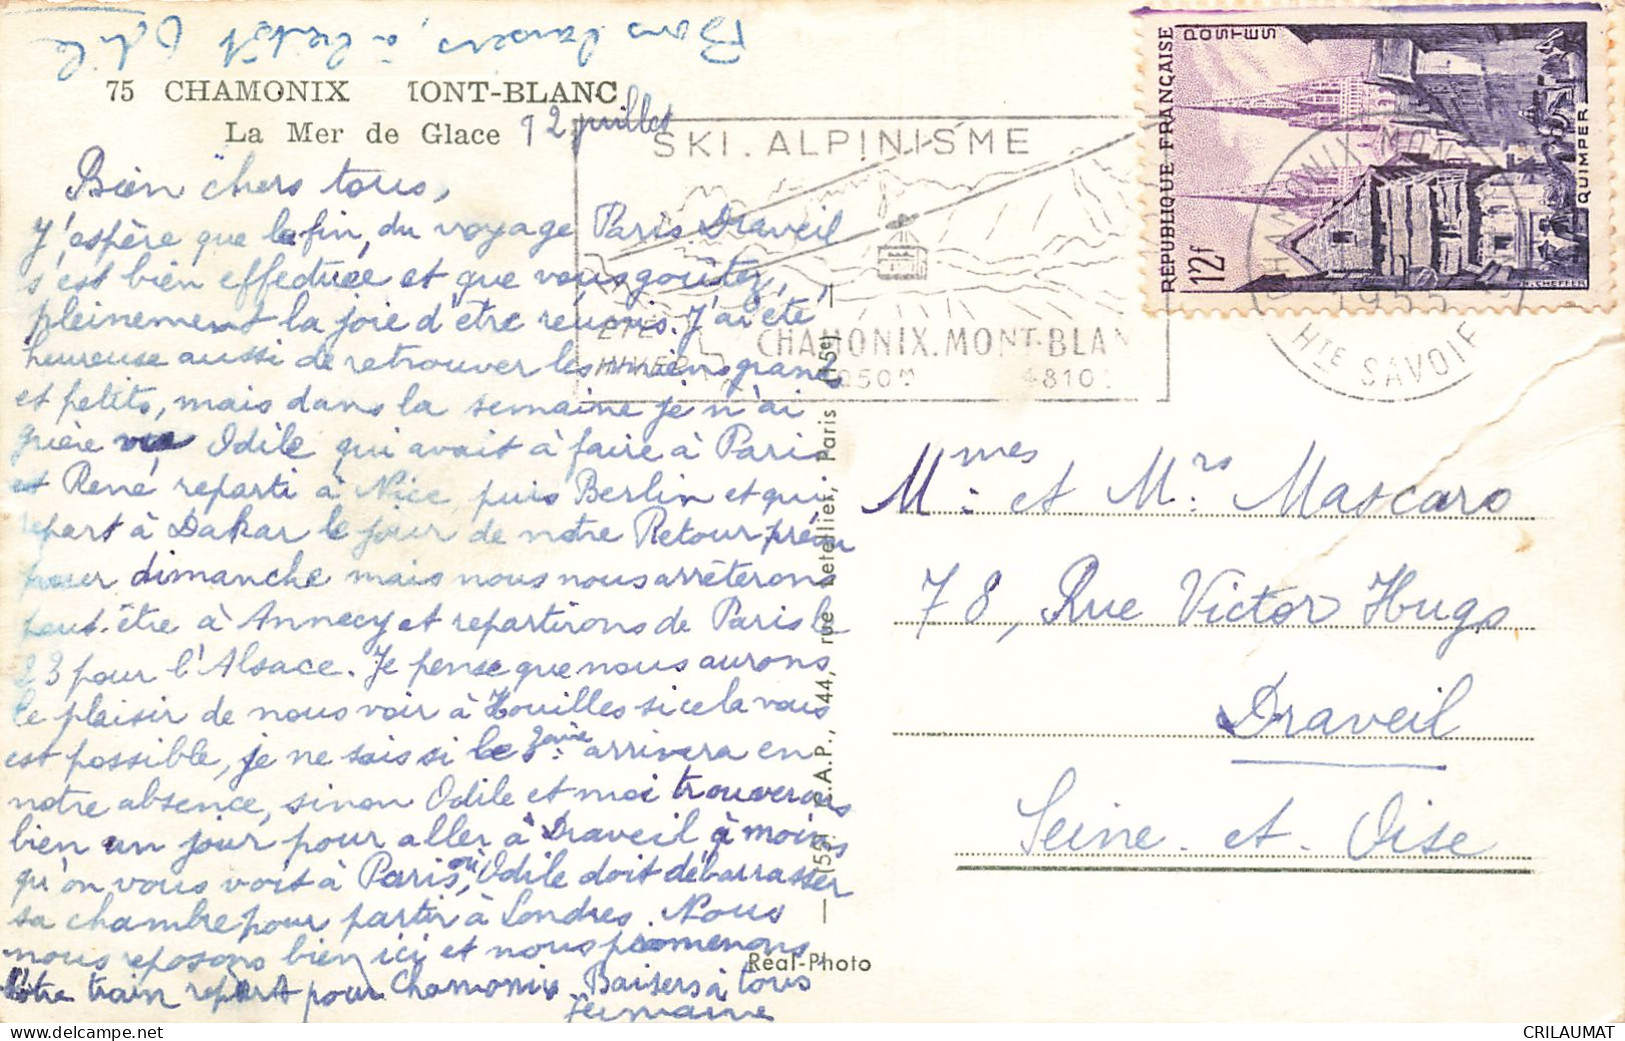 Bons baisers, à bientôt Odile
75 CHAMONIX MONT-BLANC
La Mer de Glace
12 juillet
Bien chers tous,
J'espère que la fin, du voyage Paris Draveil
s'est bien effectuée et que vous goûtez,
pleinement la joie d'être réunis. J'ai été
heureuse aussi de retrouver les miens grands
et petits, mais dans la semaine je n'ai
guère vu Odile qui avait à faire à Paris
et René reparti à Nice, puis Berlin et qui
repart à Dakar le jour de notre Retour prévu
pour dimanche mais nous nous arrêterons
peut-être à Annecy et repartirons de Paris le
23 pour l'Alsace. Je pense que nous aurons
le plaisir de nous voir à Houilles si cela vous
est possible, je ne sais si le 3ème arrivera en
notre absence, sinon Odile et moi trouverons
bien un jour pour aller à Draveil à moins
qu'on vous voit à Paris, où Odile doit débarrasser
sa chambre pour partir à Londres. Nous
nous reposons bien ici et nous promenons
Notre train repart pour Chamonix Baisers à tous
Germaine
SKI. ALPINISME
ÉTÉ
HIVER
CHAMONIX.MONT-BLAN
1050M 4810
RÉPUBLIQUE FRANÇAISE
POSTES
12f
QUIMPER
H. CHEFFER
CHAMONIX-MON
1955
HTE SAVOIE
— (55) C.A.P., 44, rue Letellier, Paris (15e) —
Real-Photo
Mmes et Mrs Mascaro
78, Rue Victor Hugo
Draveil
Seine-et-Oise
CRILAUMAT